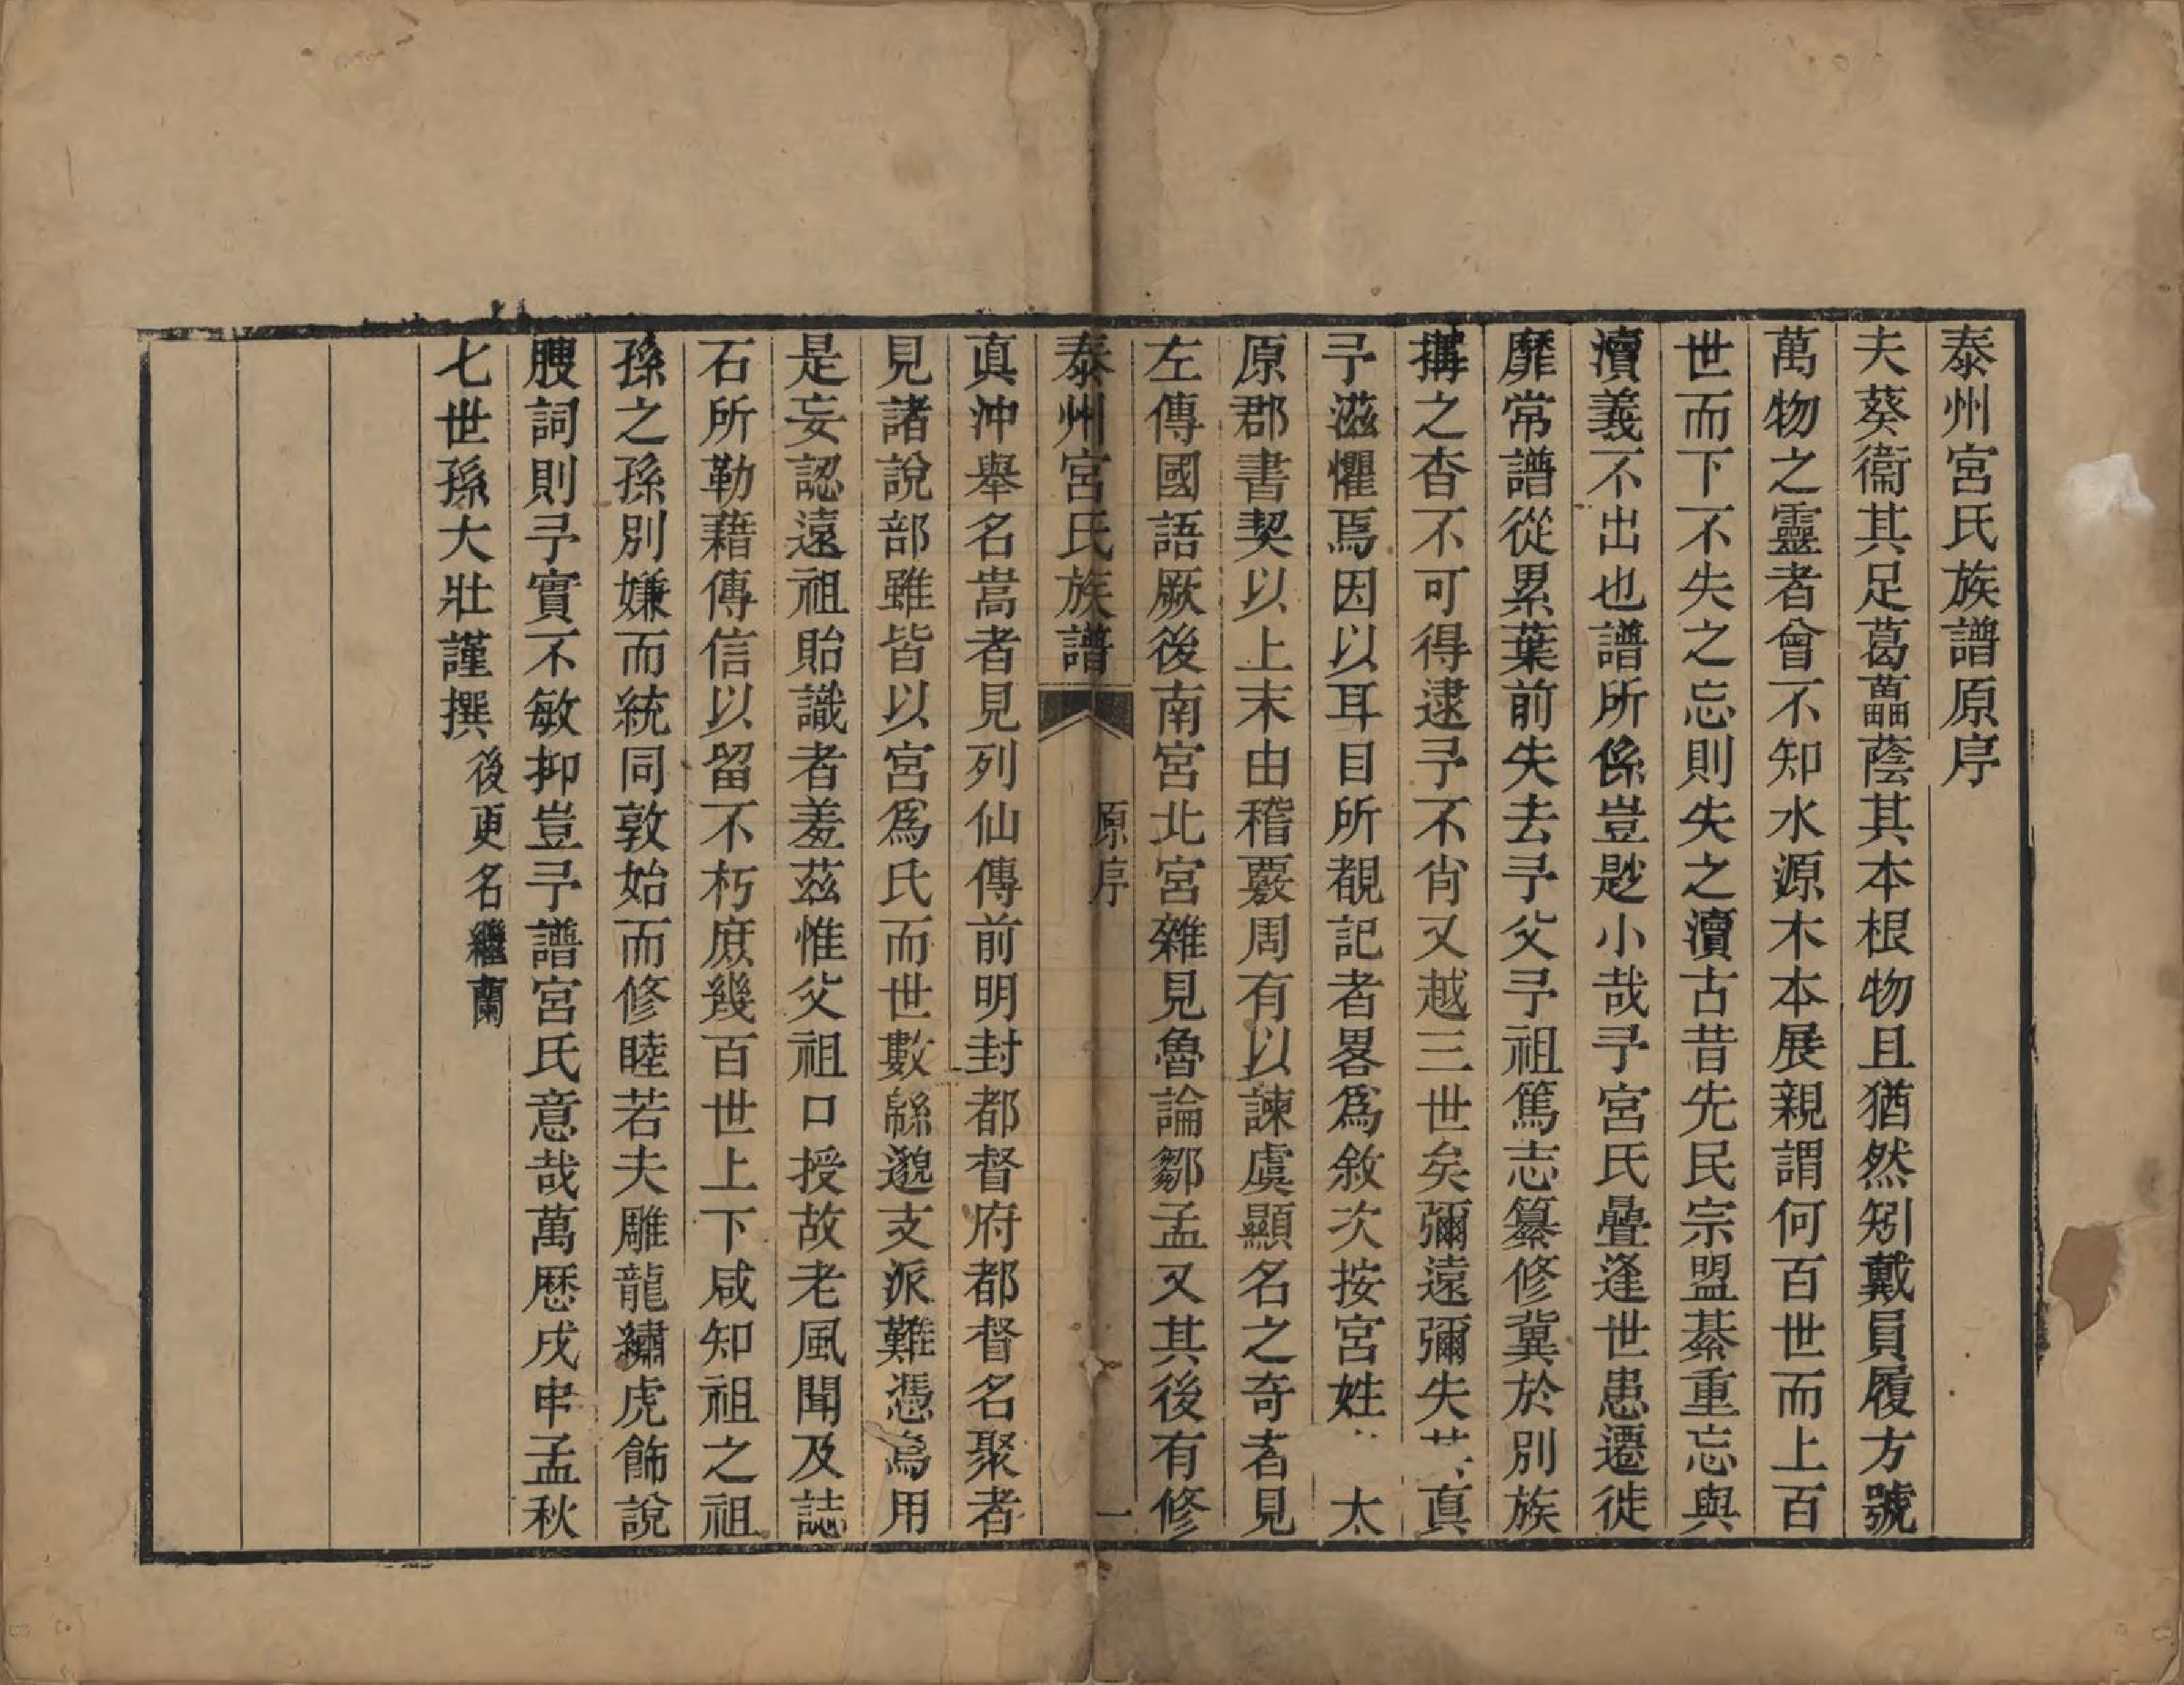 泰州宮氏族譜原序
夫葵衞其足葛藟蔭其本根物且猶然矧戴員履方號
萬物之靈者曾不知水源木本展親謂何百世而上百
世而下不失之忘則失之瀆古昔先民宗盟綦重忘與
瀆義不出也譜所係豈尟小哉予宮氏疊逢世患遷徙
靡常譜從累葉前失去予父予祖篤志纂修冀於別族
搆之杳不可得逮予不肖又越三世矣彌遠彌失其真
予滋懼焉因以耳目所覩記者畧爲敘次按宮姓太
原郡書契以上末由稽覈周有以諫虞顯名之奇者見
左傳國語厥後南宮北宮雜見魯論鄒孟又其後有修
泰州宮氏族譜　原序　一
真沖舉名嵩者見列仙傳前明封都督府都督名聚者
見諸說部雖皆以宮爲氏而世數緜邈支派難憑烏用
是妄認遠祖貽識者羞茲惟父祖口授故老風聞及誌
石所勒藉傳信以留不朽庶幾百世上下咸知祖之祖
孫之孫別嫌而統同敦始而修睦若夫雕龍繡虎飾說
膄詞則予實不敏抑豈予譜宮氏意哉萬歷戊申孟秋
七世孫大壯謹撰後更名繼蘭